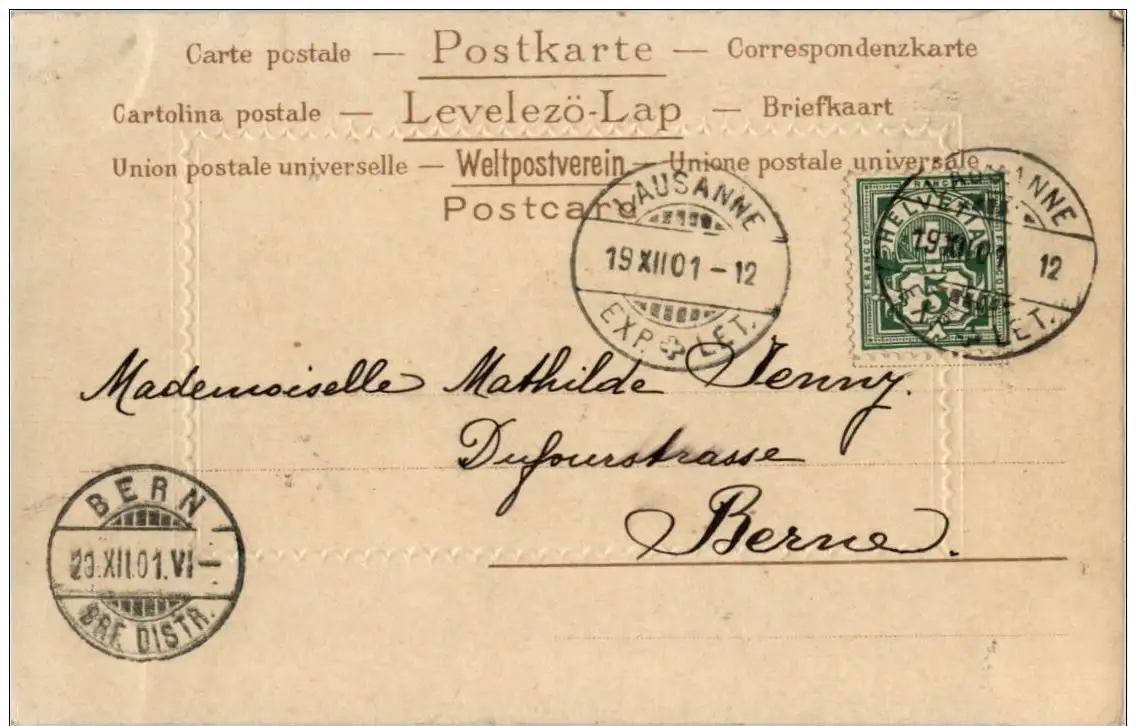 Carte postale — Postkarte — Correspondenzkarte
Cartolina postale — Levelezö-Lap — Briefkaart
Union postale universelle — Weltpostverein — Unione postale universale
Postcard
LAUSANNE
19 XII 01 - 12
EXP. LET.
HELVETIA
FRANCO
5
LAUSANNE
19 XII 01 12
EXP. LET.
Mademoiselle Mathilde Jenny.
Dufourstrasse
Berne.
BERN
XII.01.VI-
BRF. DISTR.